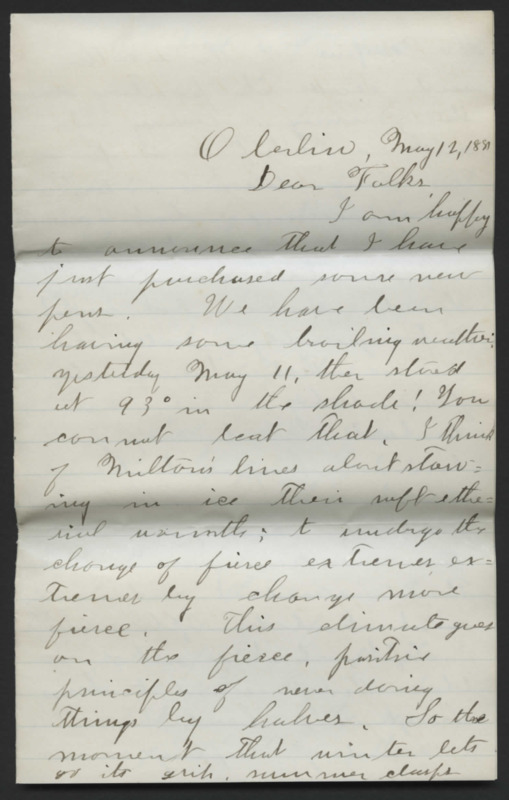 Oberlin, May 12, 1881
Dear Folks,
I am happy
to announce that I have
just purchased some new
pens. We have been
having some broiling weather.
yesterday May 11, ther stood
at 93° in the shade! You
can not beat that. I think
of Milton's lines about starv=
ing in ice their soft ethe-
rial warmth; to undergo the
change of fierce extremes ex=
tremes by change more
fierce. This climate goes
on the fierce, positive
principles of never doing
things by halves. So the
moment that winter lets
go its grip, summer clasps